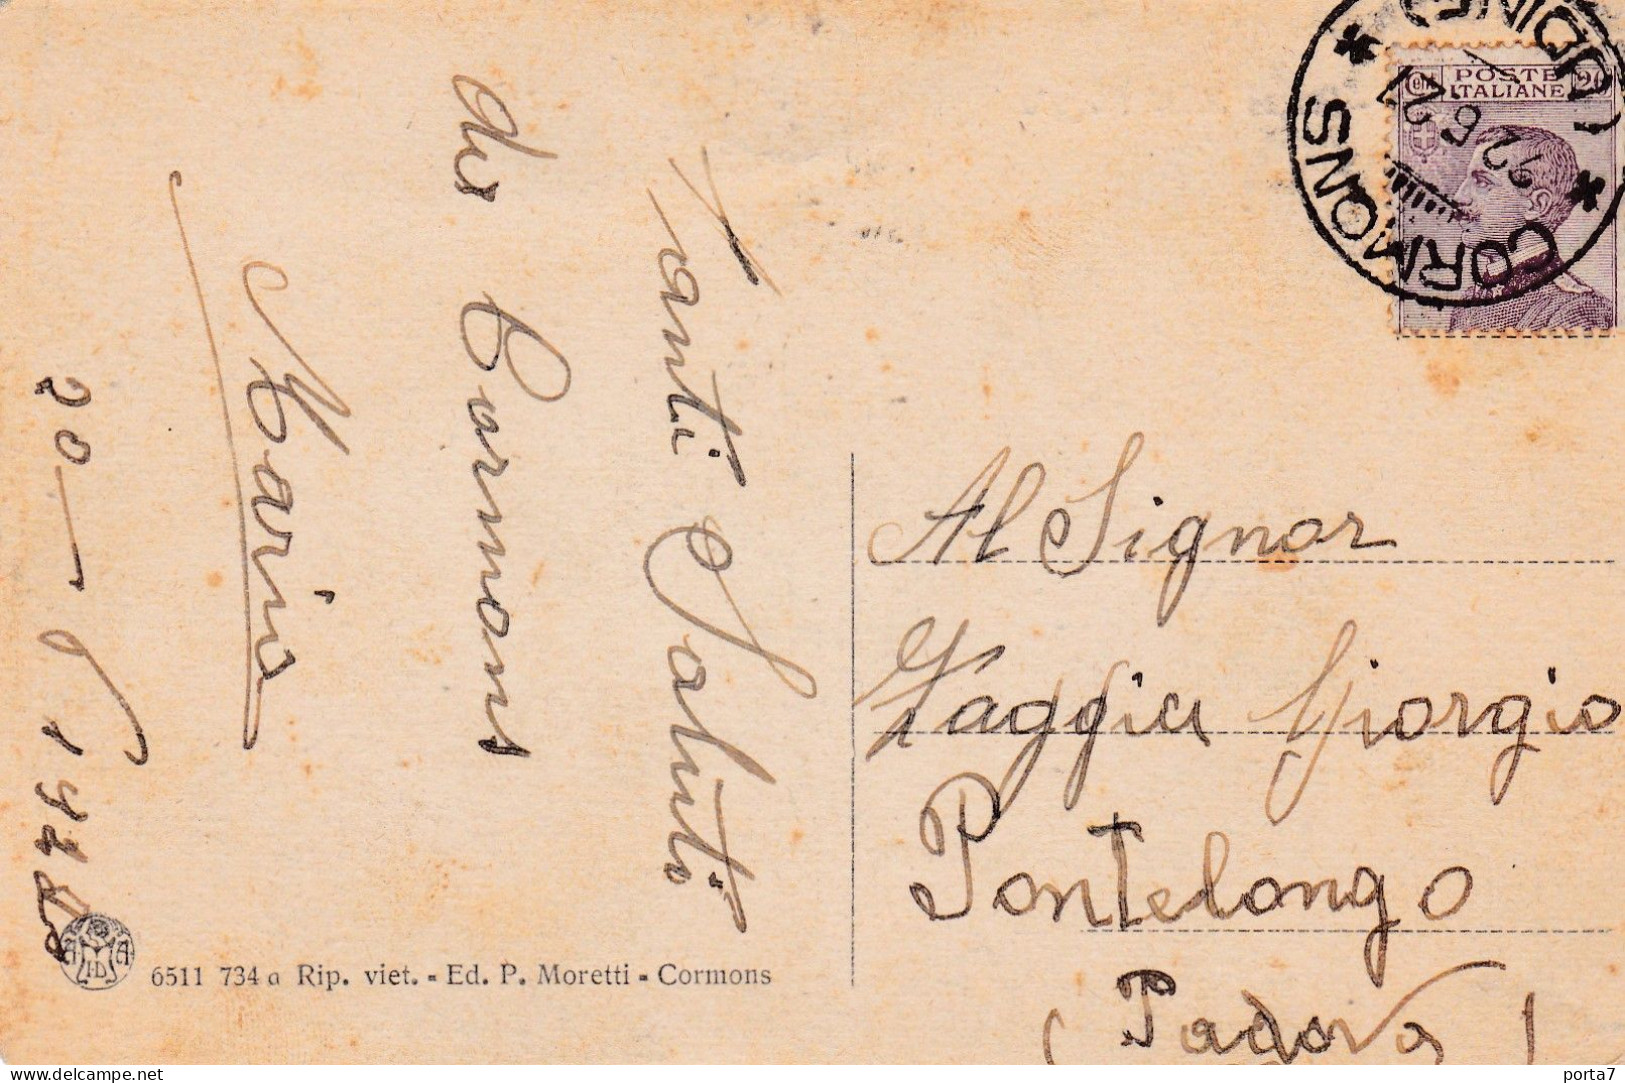 Tanti Saluti
da Cormons
Maria
20 - 6 192
6511 734 a Rip. viet. - Ed. P. Moretti - Cormons
Cent 20
POSTE
ITALIANE
CORMONS
(UDINE)
12 6 27
Al Signor
Faggia Giorgio
Pontelongo
(Padova)
delcampe.net
porta7